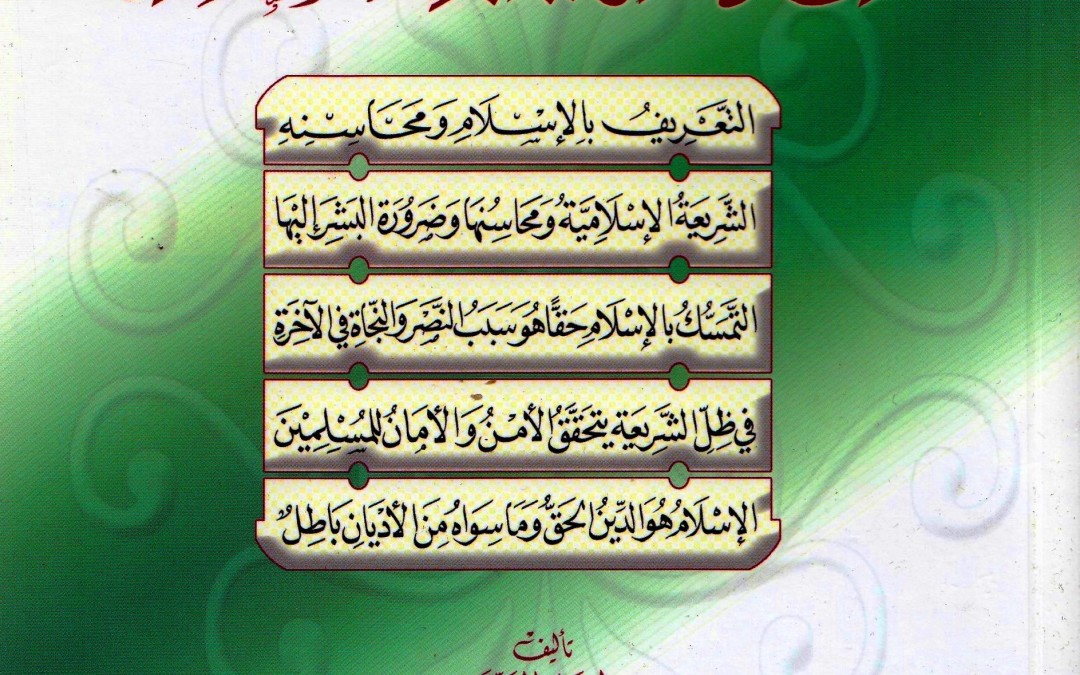 التَّعْرِيفُ بِالإِسْلَامِ وَمَحَاسِنِهِ
الشَّرِيعَةُ الإِسْلَامِيَّةُ وَمَحَاسِنُهَا وَضَرُورَةُ البَشَرِ إِلَيْهَا
التَّمَسُّكُ بِالإِسْلَامِ حَقًّا هُوَ سَبَبُ النَّصْرِ وَالنَّجَاةِ فِي الآخِرَةِ
فِي ظِلِّ الشَّرِيعَةِ يَتَحَقَّقُ الأَمْنُ وَالأَمَانُ لِلْمُسْلِمِينَ
الإِسْلَامُ هُوَ الدِّينُ الحَقُّ وَمَا سِوَاهُ مِنَ الأَدْيَانِ بَاطِلٌ
تأليف